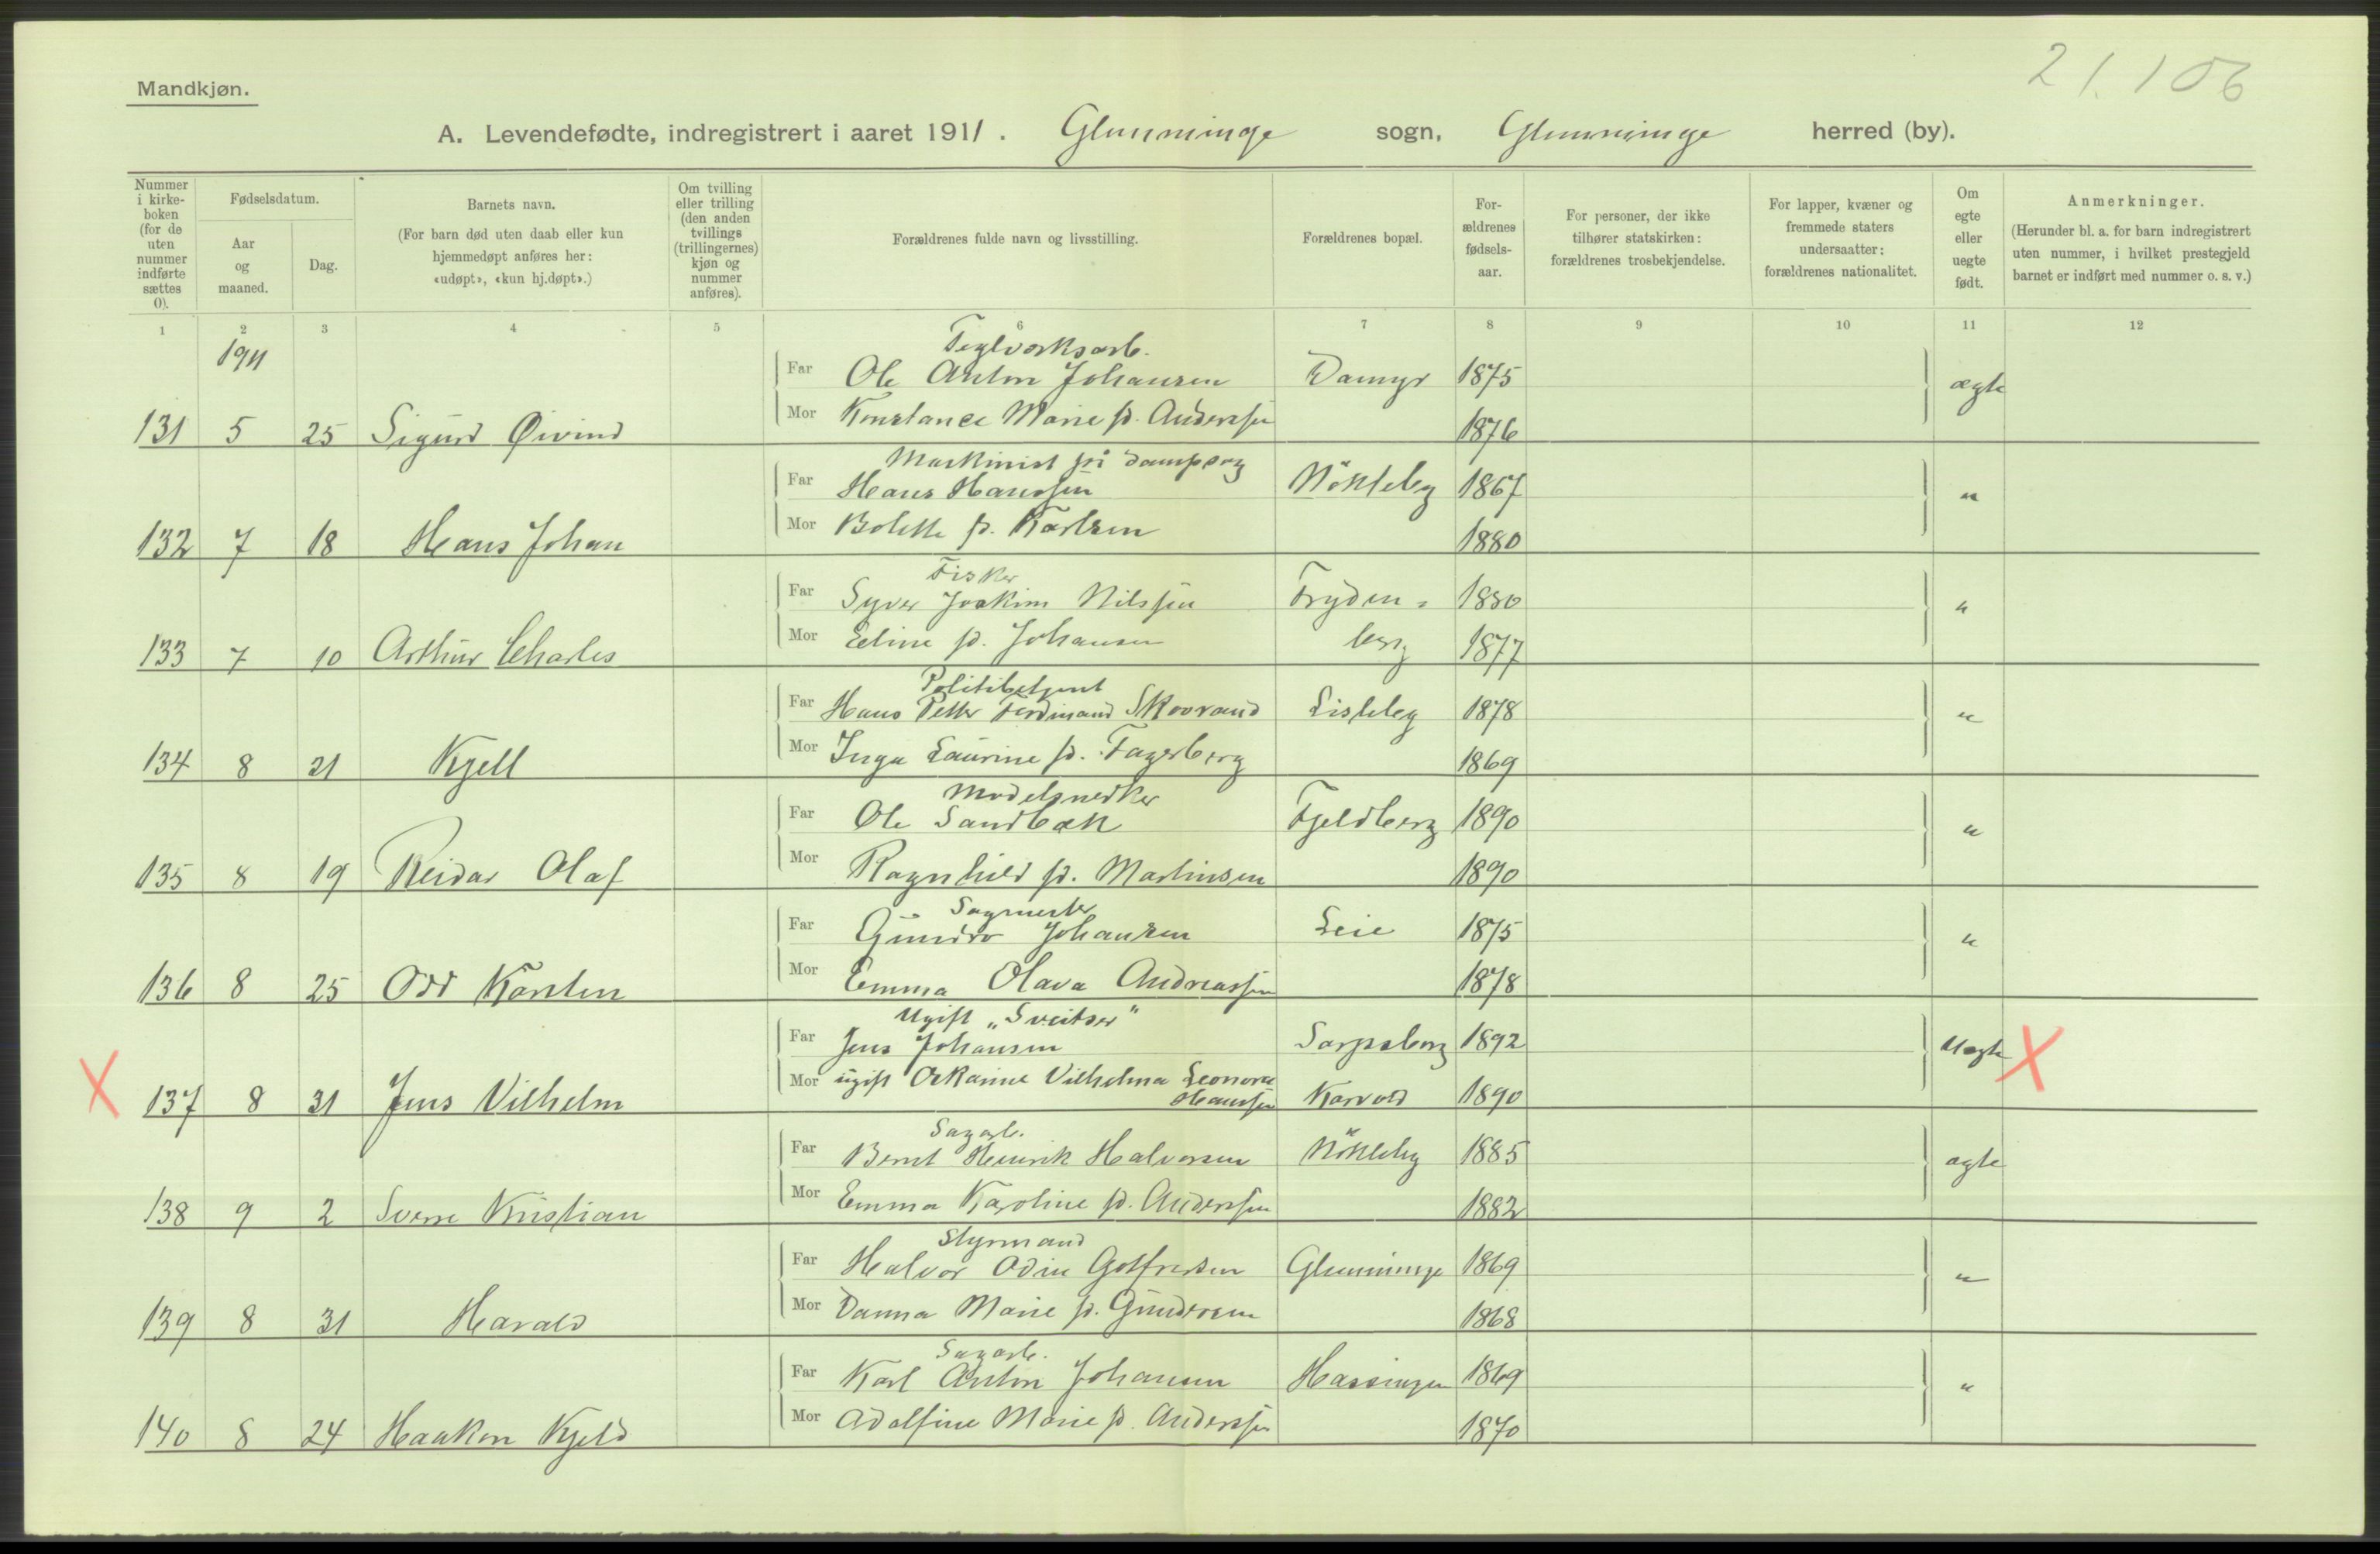 21.106
Mandkjøn.
A. Levendefødte, indregistrert i aaret 1911. Glemminge sogn, Glemminge herred (by).
Nummer i kirkeboken (for de uten nummer indførte sættes 0).
Fødselsdatum.
Aar og maaned.
Dag.
Barnets navn.
(For barn død uten daab eller kun hjemmedøpt anføres her: «udøpt», «kun hj.døpt».)
Om tvilling eller trilling (den anden tvillings (trillingernes) kjøn og nummer anføres).
Forældrenes fulde navn og livsstilling.
Forældrenes bopæl.
Forældrenes fødselsaar.
For personer, der ikke tilhører statskirken: forældrenes trosbekjendelse.
For lapper, kvæner og fremmede staters undersaatter: forældrenes nationalitet.
Om egte eller uegte født.
Anmerkninger.
(Herunder bl. a. for barn indregistrert uten nummer, i hvilket prestegjeld barnet er indført med nummer o. s. v.)
1 2 3 4 5 6 7 8 9 10 11 12
1911
Teglværksarb.
Far Ole Anton Johansen Damyr 1875 ægte
Mor Konstance Marie f. Anderssen 1876
131 5 25 Sigurd Øivind
Maskinist på dampsag
Far Hans Hanssen Nökleby 1867 "
Mor Bolette f. Karlsen 1880
132 7 18 Hans Johan
Fisker
Far Syver Joakim Nilssen Fryden= 1880 "
Mor Eline f. Johansen berg 1877
133 7 10 Arthur Charles
Politibetjent
Far Hans Petter Ferdinand Skovrand Lisleby 1878 "
Mor Inga Laurine f. Fagerberg 1869
134 8 21 Kjell
Modelsnedker
Far Ole Sandbæk Fjeldberg 1890 "
Mor Ragnhild f. Martinsen 1890
135 8 19 Reidar Olaf
Sagmester
Far Gundro Johansen Leie 1875 "
Mor Emma Olava Andreassen 1878
136 8 25 Odd Karsten
Ugift „Sveitser"
Far Jens Johansen Sarpsborg 1892 Uægte X
Mor ugift Oskarine Vilhelma Leonora
Hanssen Karvold 1890
X 137 8 31 Jens Vilhelm
Sagarb.
Far Bernt Henrik Halvorsen Nökleby 1885 ægte
Mor Emma Karoline f. Anderssen 1882
138 9 2 Sverre Kristian
Styrmand
Far Halvor Odin Gotfredsen Glemminge 1869 "
Mor Danna Marie f. Gundersen 1868
139 8 31 Harald
Sagarb.
Far Karl Anton Johansen Hassingen 1869 "
Mor Adolfine Marie f. Anderssen 1870
140 8 24 Haakon Kjeld